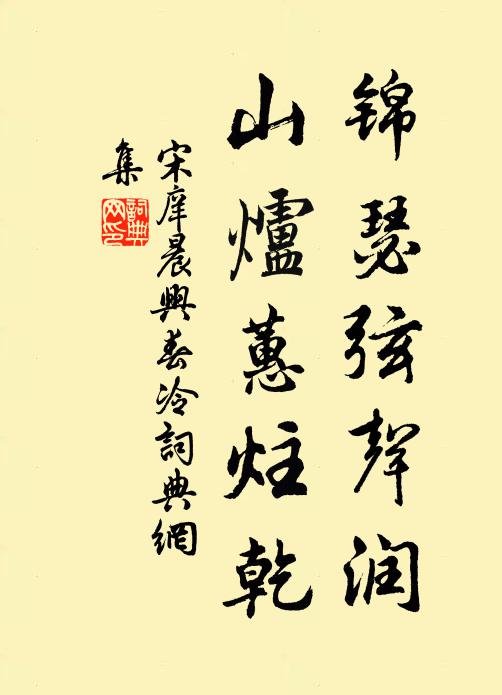 锦瑟弦聲润
山爐蕙炷乾
宋庠晨興春冷詞典網
集
詞典网印